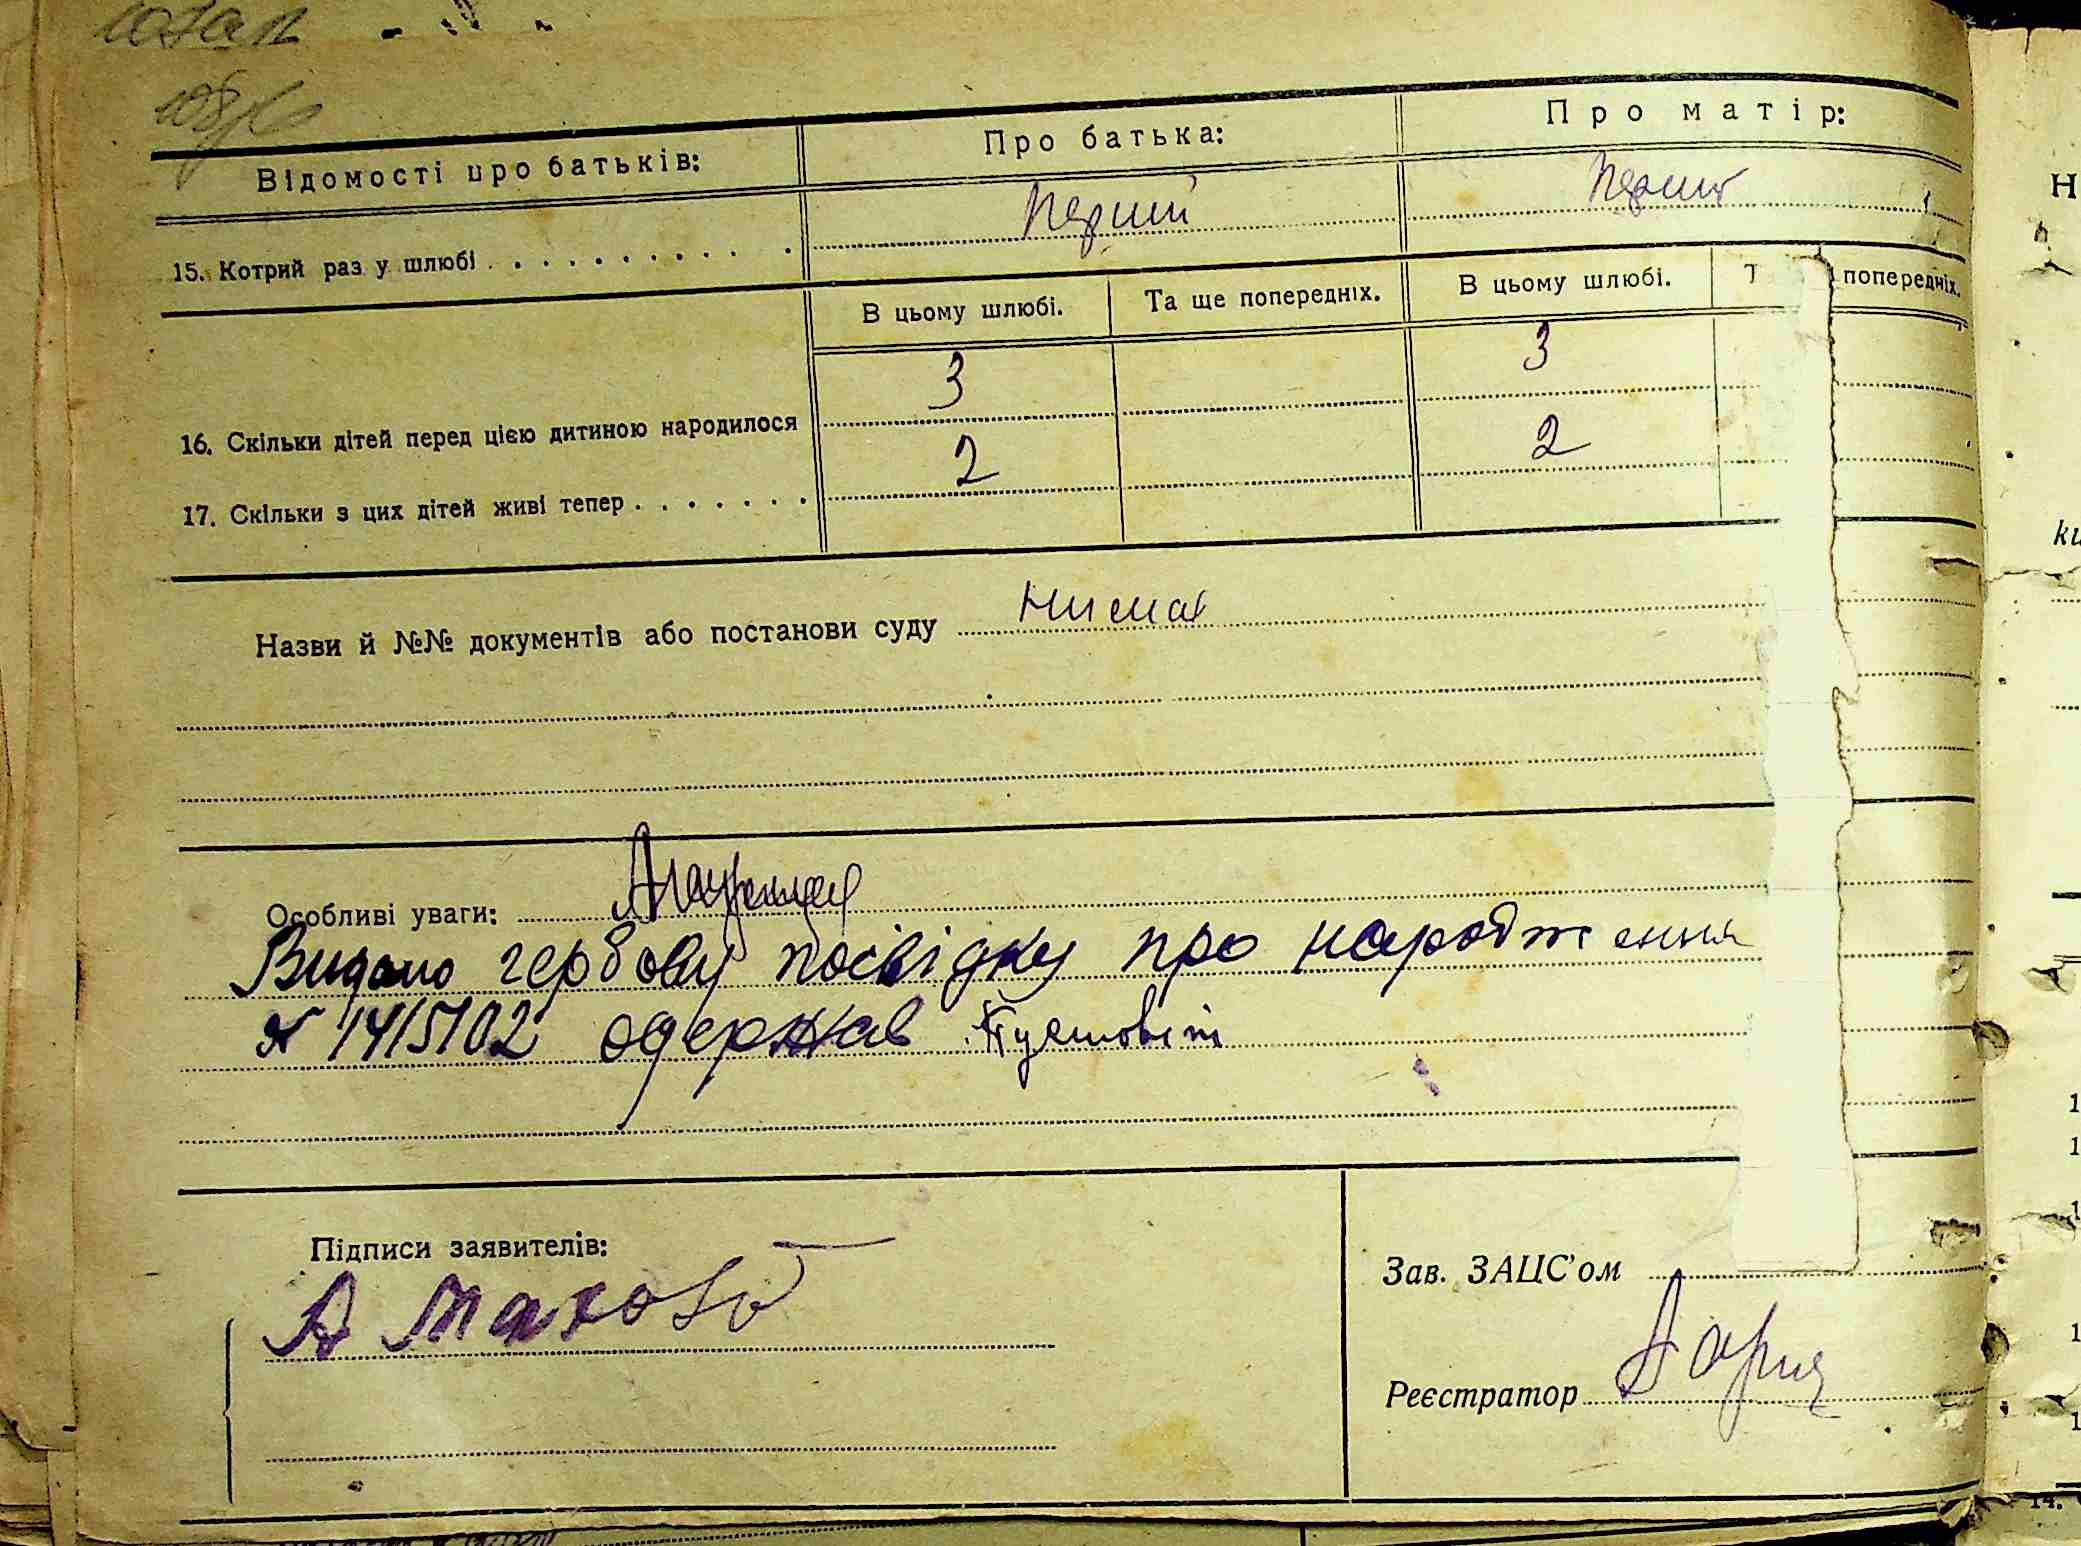 Відомості про батьків: Про батька: Про матір:
15. Котрий раз у шлюбі . . . . . . . . . . . Перший Перший
В цьому шлюбі. Та ще попередніх. В цьому шлюбі. Т попередніх.
16. Скільки дітей перед цією дитиною народилося 3 3
17. Скільки з цих дітей живі тепер . . . . . . . 2 2
Назви й №№ документів або постанови суду Нимає
Особливі уваги:
Видано гербову посвідку про народження
№ 1415102 одержав
Підписи заявителів:
А
Зав. ЗАЦС'ом
Реєстратор